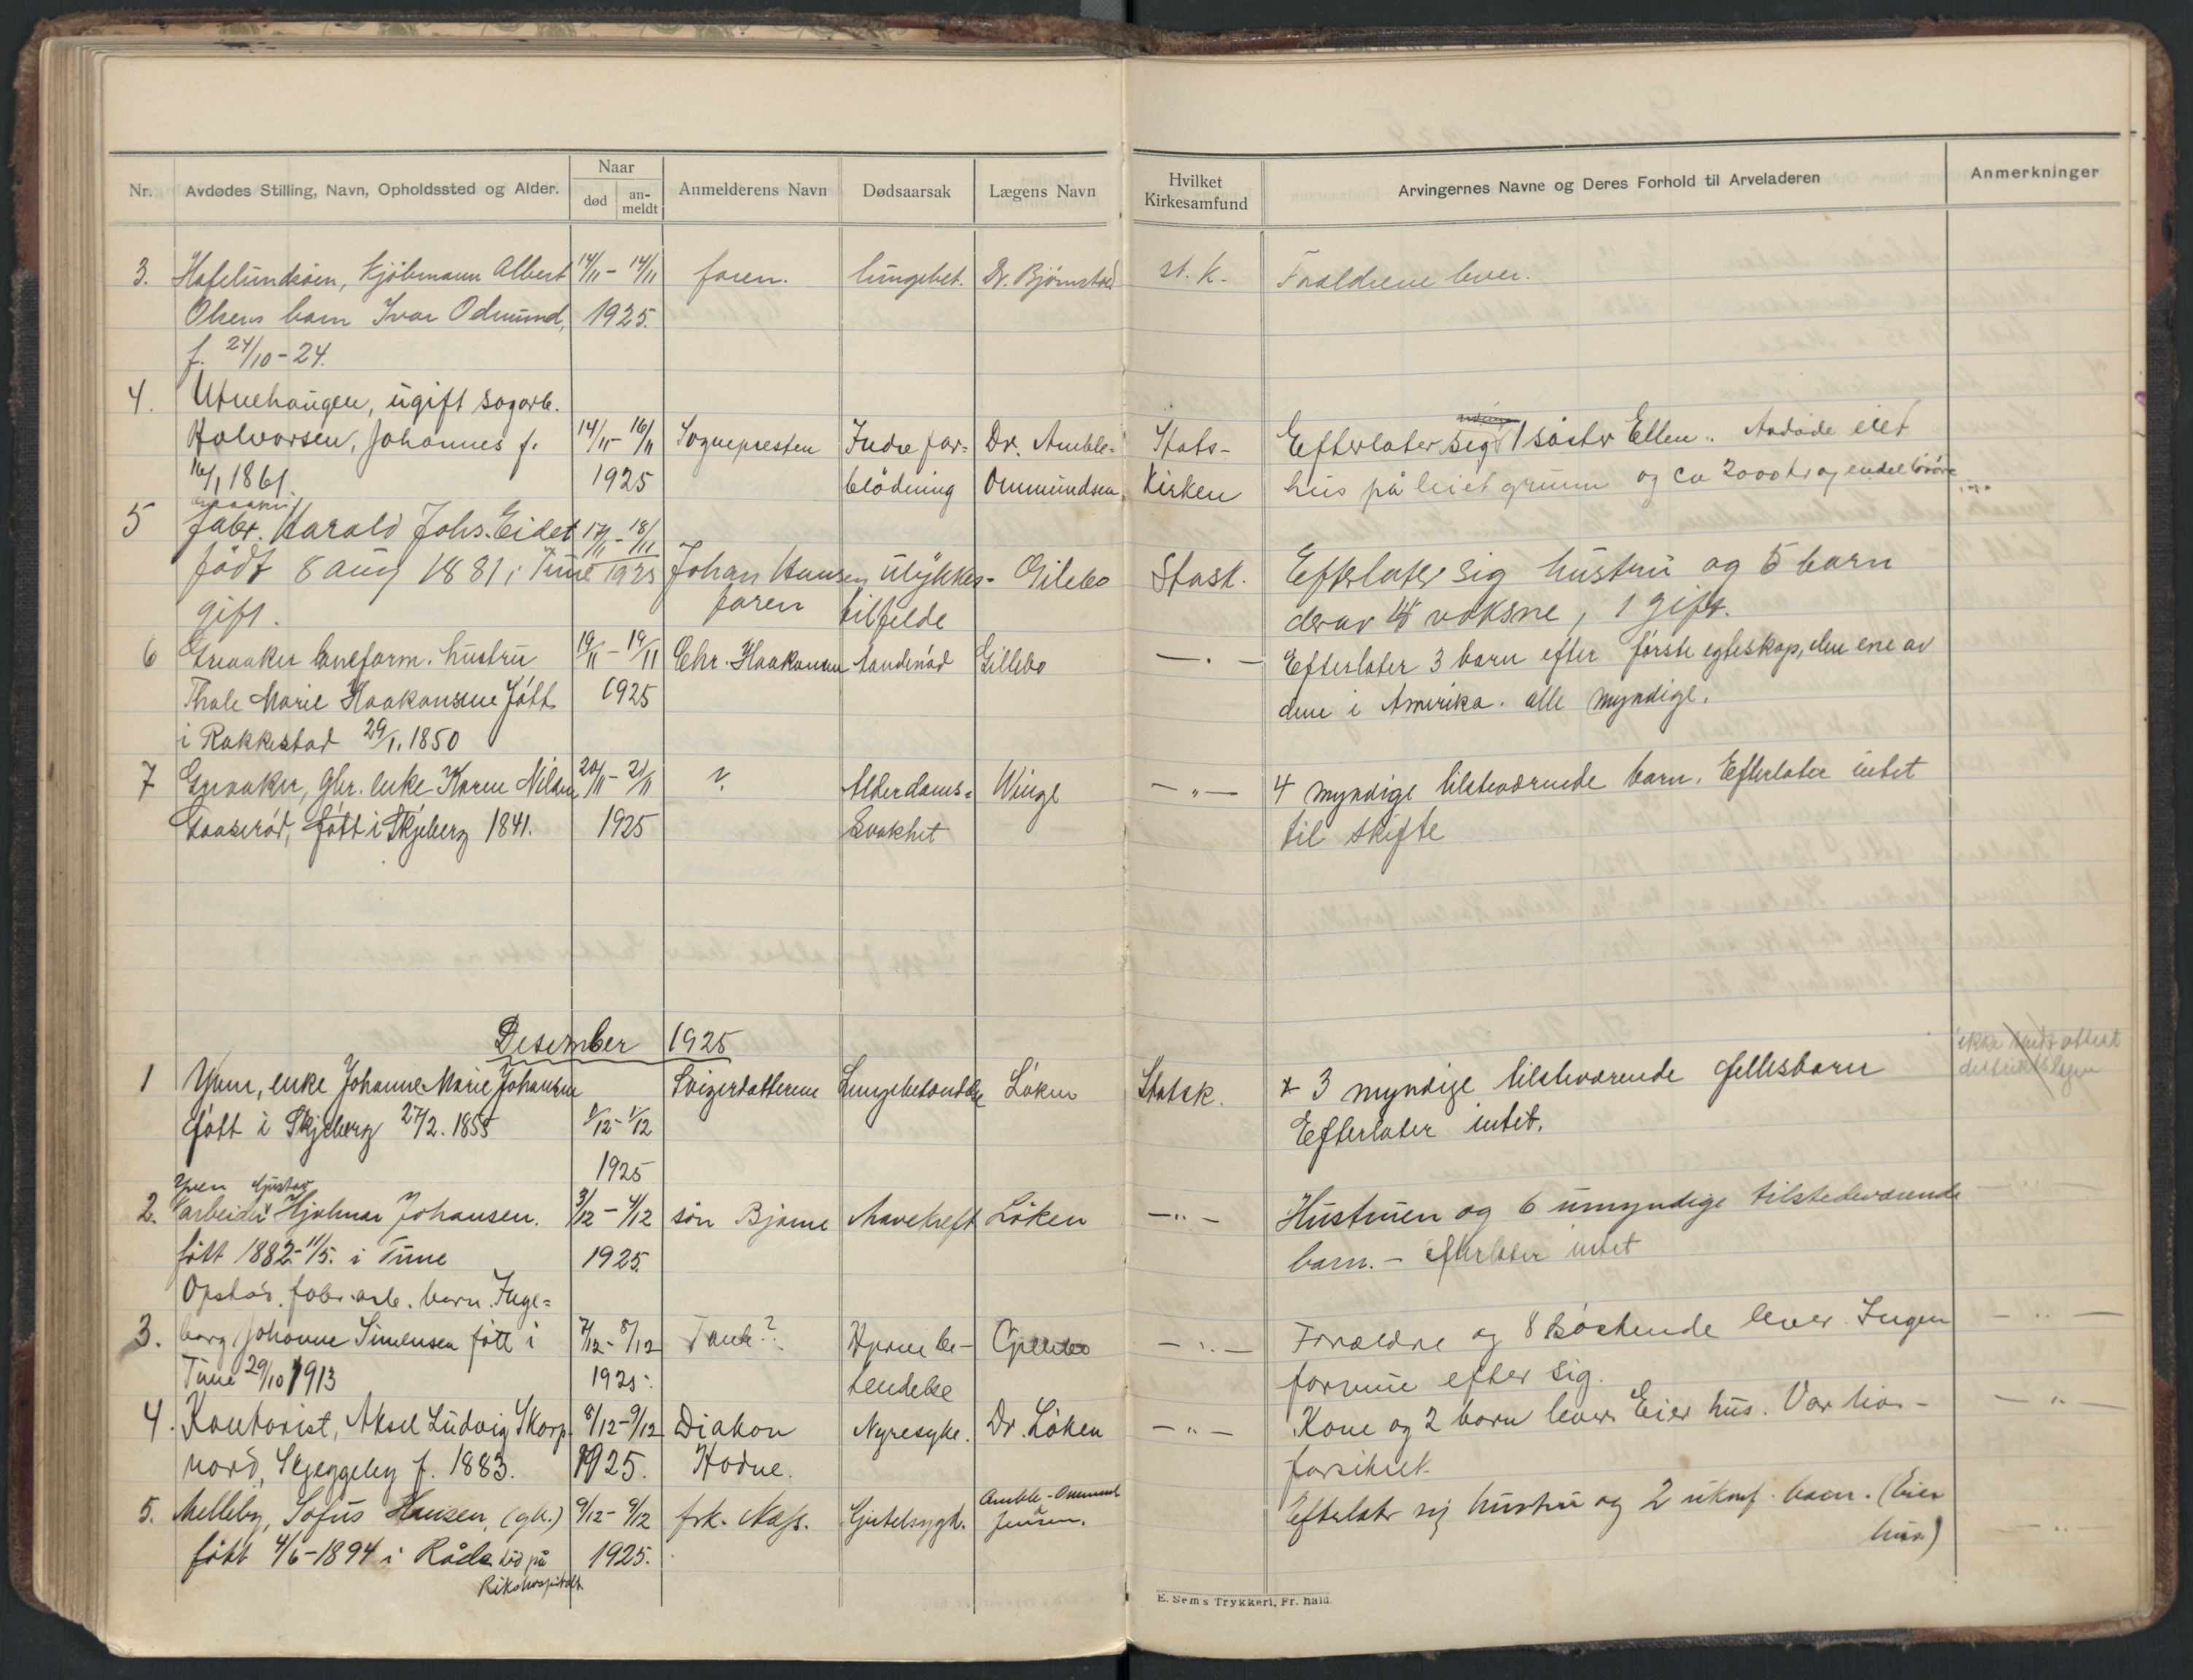 Nr. Avdødes Stilling, Navn, Opholdssted og Alder. Naar død an-meldt Anmelderens Navn Dødsaarsak Lægens Navn Hvilket Kirkesamfund Arvingernes Navne og Deres Forhold til Arveladeren Anmerkninger
3. Hafslundsøen, Kjøbmann Albert 14/11 - 14/11 faren. lungebet. Dr. Bjørnstad st. k. Forældrene lever.
Olsens barn Ivar Odmund, 1925.
f. 24/10-24.
4. Utnehaugen, ugift sagarb.
Halvorsen, Johannes f. 14/11 - 16/11 Sognepresten Indre for= Dr. Amble= Stats- Efterlater sig 1 søster Ellen. Avdøde eiet
16/1 1861. 1925 blødning Ommundsen. Kirken hus på leiet grunn og ca 2000 kr og endel
5 fabr. Harald Johs. Eidet 17/11 - 18/11
født 8 aug 1881 i Tune 1925 Johan Hansen ulykkes- Gilebo Statsk. Efterlater sig hustru og 5 barn
gift. faren tilfelde derav 4 voksne, 1 gift.
6 Greaaker baneform. hustru 19/11 - 19/11 Chr. Haakonsen Gillebo — . — Efterlater 3 barn efter første egteskap, den ene av
Thale Marie Haakonsen født 1925 dem i Amerika. alle myndige.
i Rakkestad 29/1. 1850
7 Greaaker, enke Karen Nilsen 20/11 - 21/11 ? Alderdoms= Winge — " — 4 myndige tilstedeværende barn. Efterlater intet
født i Skjeberg 1841. 1925 Svakhet til skifte
Desember 1925
1 Yven, enke Johanne Marie Johansen Svigerdatteren Lungebetændelse Løken Statsk. 3 myndige tilsteværende fellesbarn
født i Skjeberg 27/2. 1855 1/12 - 1/12 Efterlater intet.
1925
Yven Gustav
2. arbeider Hjalmar Johansen. 3/12 - 4/12 søn Bjarne Mavekreft Løken — " — Hustruen og 6 umyndige tilstedeværende
født 1882-11/5. i Tune 1925. barn. - efterlater intet
Opstad. fabr. arb. barn. Inge=
3. borg Johanne Simensen født i 7/12 - 8/12 Tante?. Hjerne be- Gillebo — " — Forældre og 8 søskende lever. Ingen — " —
Tune 29/10 1913 1925. tendelse formue efter sig.
4. Kontorist, Aksel Ludvig Skarp- 8/12 - 9/12 Diakon Nyresyke. Dr. Løken — " — Kone og 2 barn lever. Eier hus. Var livs- — " —
nord, Skjeggeby f. 1883. 1925. Hodne. forsikret.
5. Melleby, Sofus Hansen, (gh.) 9/12 - 9/12 frk. Næss. Amble-Ommund Jensen. Efterlater sig hustru og 2 ukonf. barn. (Eier
født 4/6-1894 i Råde død på 1925. hus) — " —
Rikshospitalet
E. Sems Trykkeri, Fr. hald.